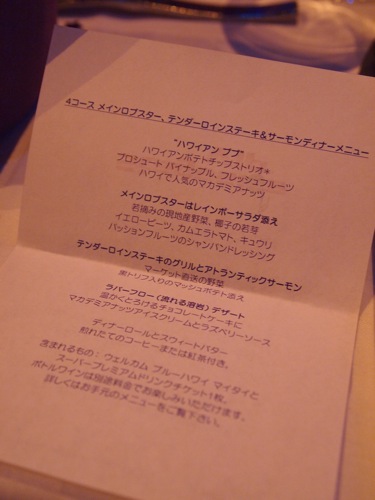 4コース メインロブスター、テンダーロインステーキ&サーモンディナーメニュー
"ハワイアン ププ"
ハワイアンポテトチップストリオ*
プロシュート パイナップル、フレッシュフルーツ
ハワイで人気のマカデミアナッツ
メインロブスターはレインボーサラダ添え
若摘みの現地産野菜、椰子の若芽
イエロービーツ、カムエラトマト、キュウリ
パッションフルーツのシャンパンドレッシング
テンダーロインステーキのグリルとアトランティックサーモン
マーケット直送の野菜
黒トリフ入りのマッシュポテト添え
ラバーフロー(流れる溶岩)デザート
温かくとろけるチョコレートケーキに
マカデミアナッツアイスクリームとラズベリーソース
ディナーロールとスウィートバター
煎れたてのコーヒーまたは紅茶付き。
含まれるもの:ウェルカム ブルーハワイ マイタイと
スーパープレミアムドリンクチケット1枚。
ボトルワインは別途料金でお楽しみいただけます。
詳しくはお手元のメニューをご覧下さい。